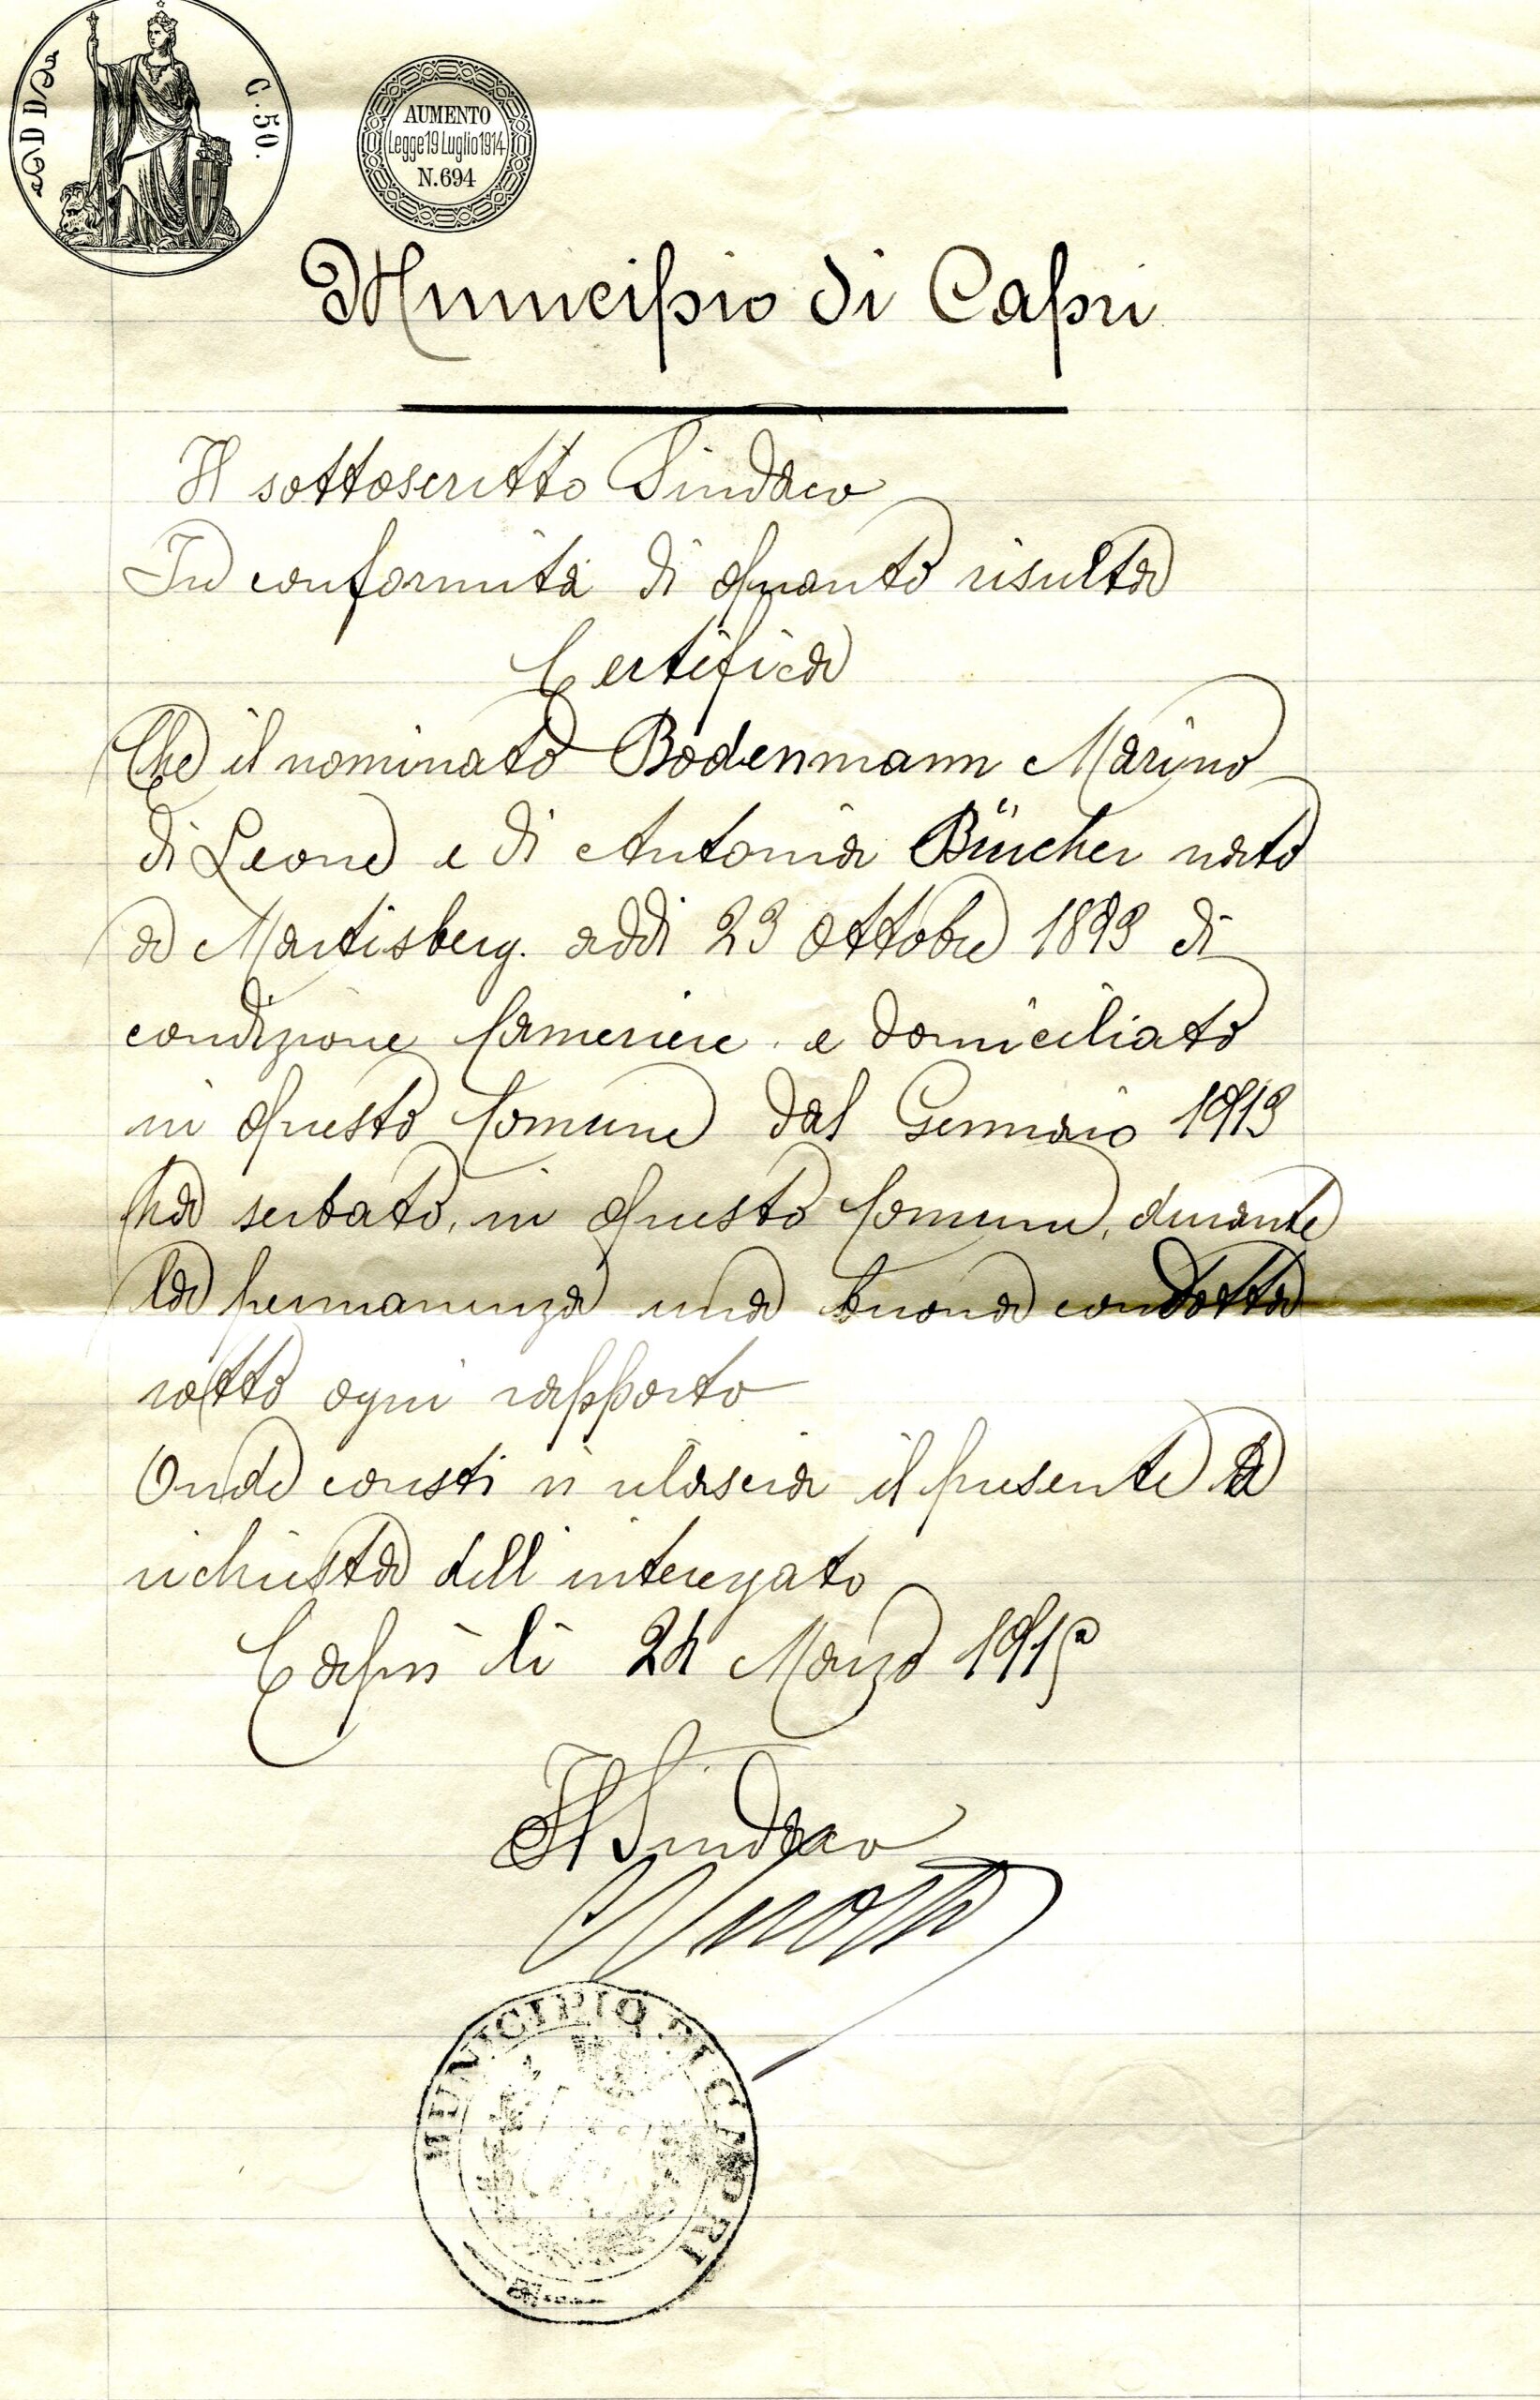 C. 50.
AUMENTO
Legge 19 Luglio 1914
N. 694
Municipio di Capri
Il sottoscritto Sindaco
In conformità di quanto risulta
Certifica
Che il nominato Bodenmann Marino
di Leone e di Antonia Bürcher nato
a Martisberg. addi 23 Ottobre 1893 di
condizione Cameriere e domiciliato
in questo Comune dal Gennaio 1913
ha serbato, in questo Comune, durante
la permanenza una buona condotta
sotto ogni rapporto
Onde consti si rilascia il presente a
richiesta dell'interegato
Capri li 24 Marzo 1915
Il Sindaco
MUNICIPIO DI CAPRI